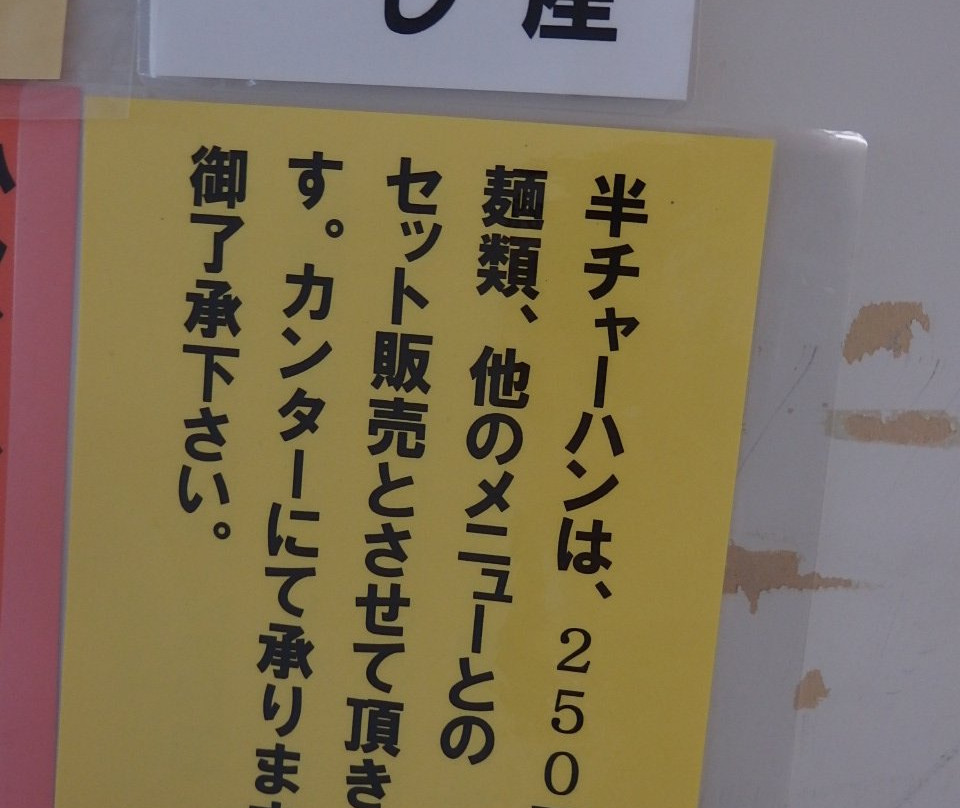 半チャーハンは、250
麺類、他のメニューとの
セット販売とさせて頂き
す。カンターにて承りま
御了承下さい。
産
し